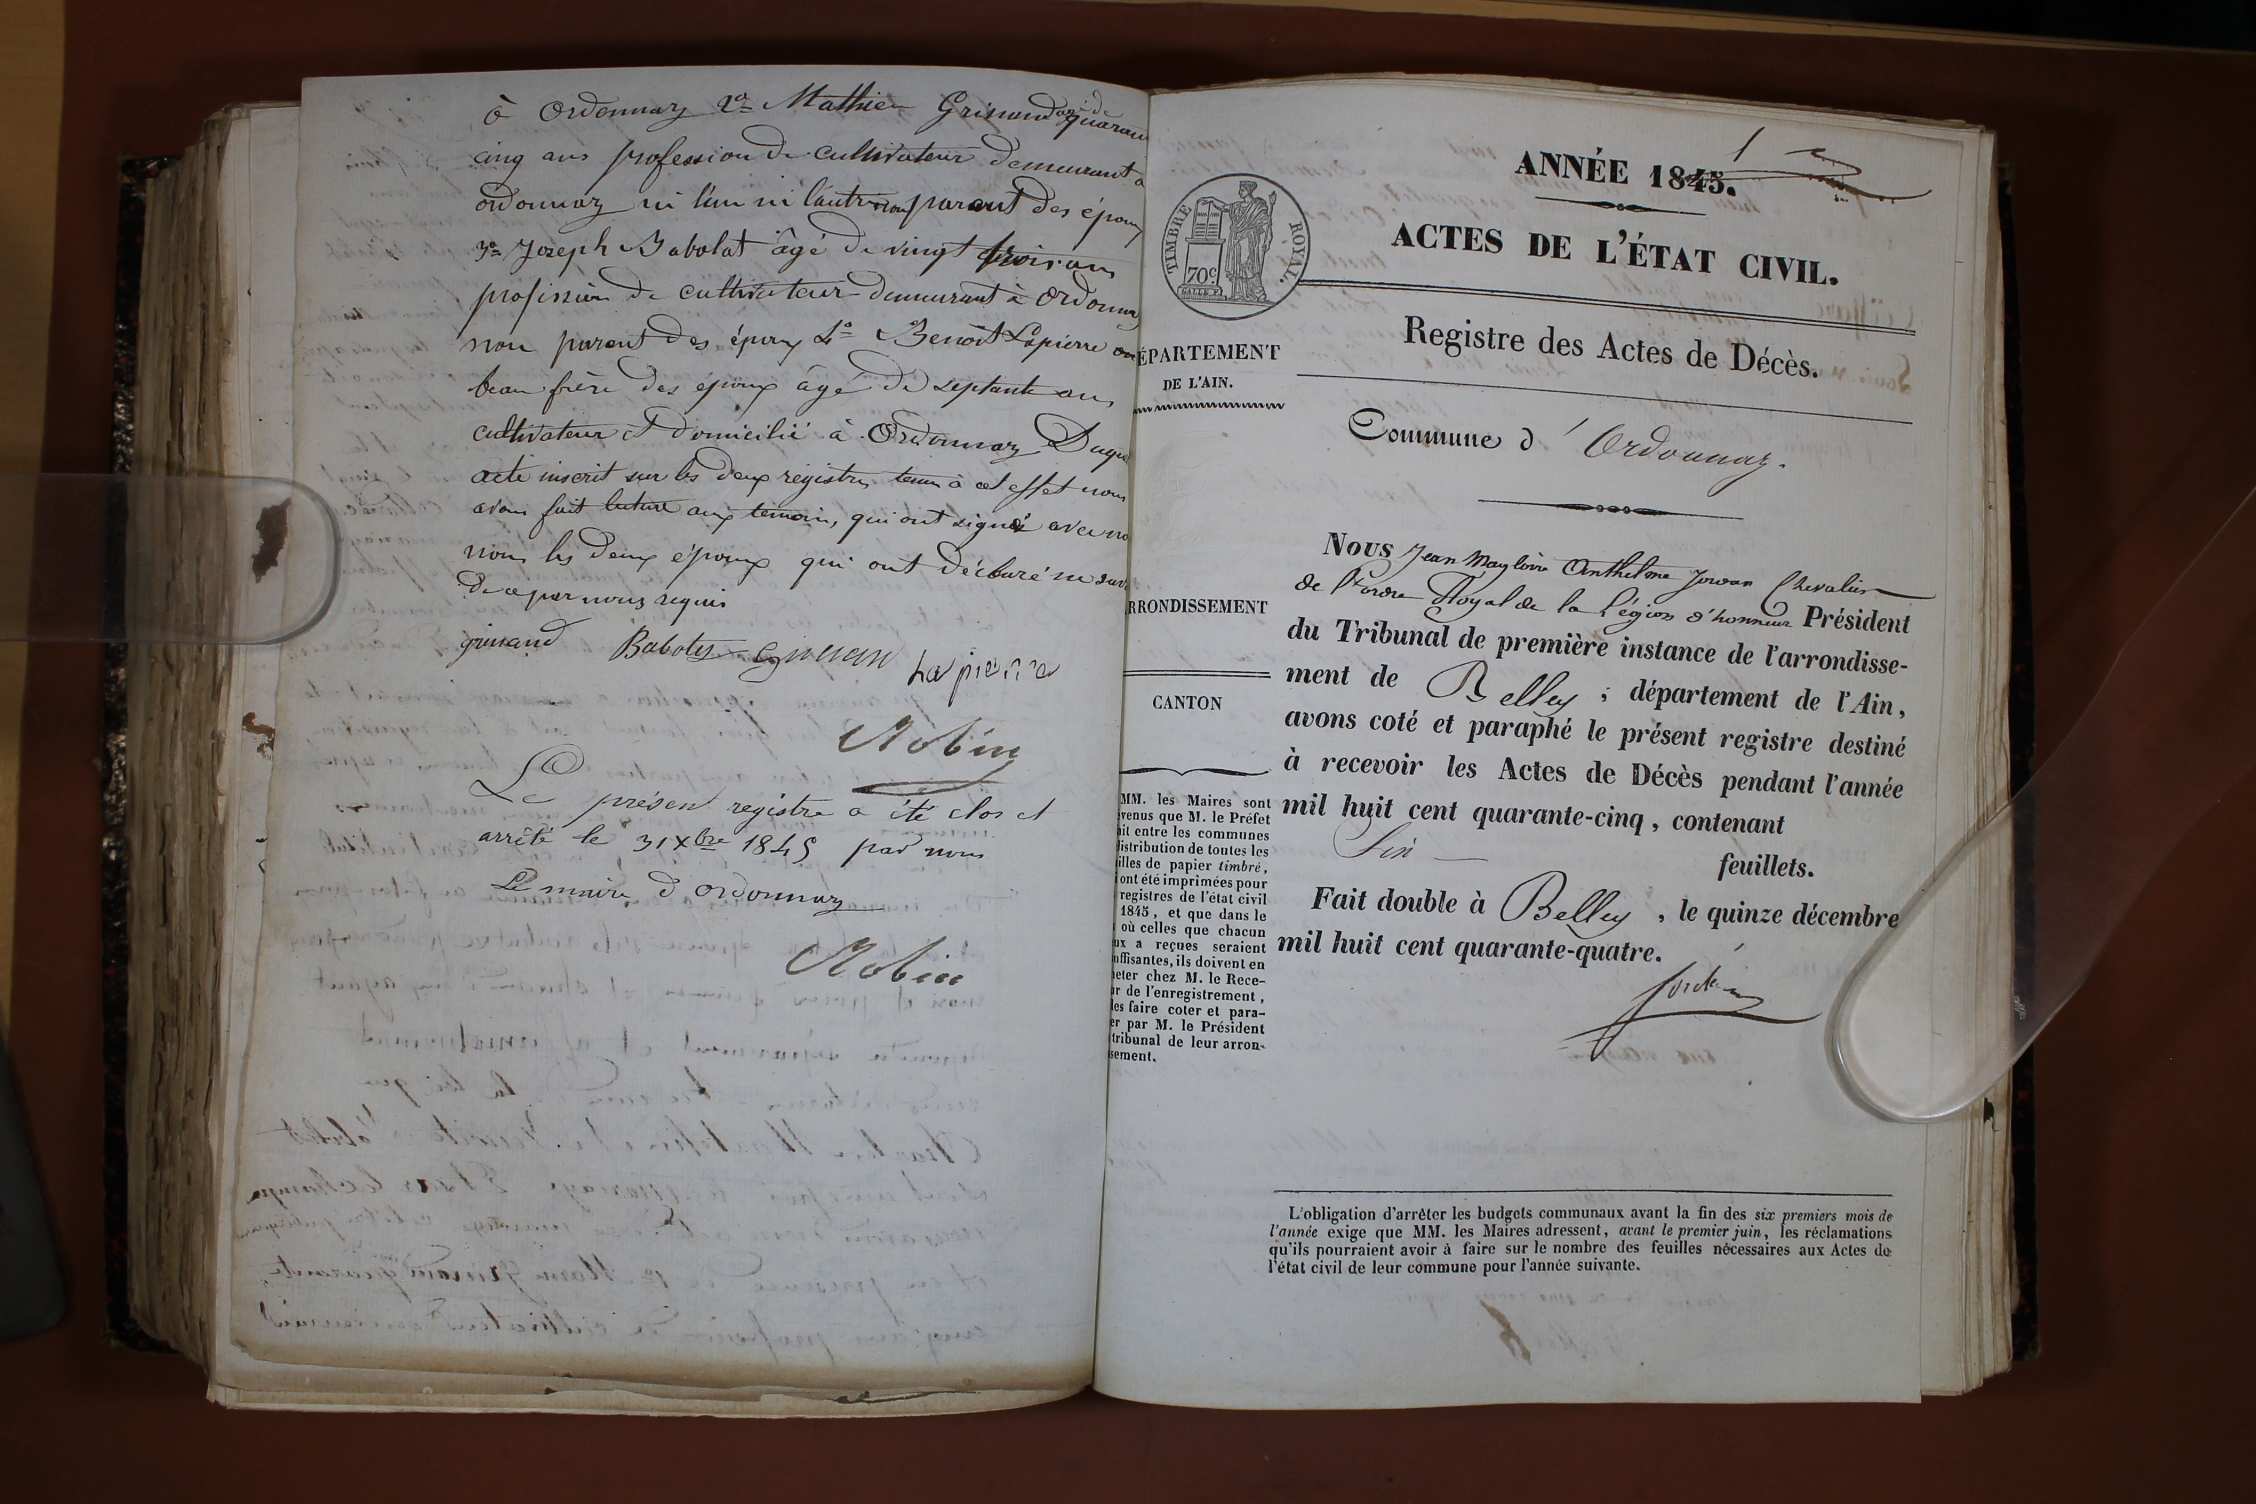 à Ordonnaz 2º Mathieu Grinand agé de quaran
cinq ans profession de cultivateur demeurant à
ordonnaz ni l'un ni l'autre non parent des époux
3º Joseph Babolat âgé de vingt trois ans
profession de cultivateur demeurant à Ordonnaz
non parent des époux 4º Benoît Lapierre
beau frère des époux âgé de septante ans
cultivateur et domicilié à Ordonnaz Duquel
acte inscrit sur les deux registres tenus à cet effet nous
avons fait lecture aux témoins, qui ont signé avec no
nous les deux époux qui ont déclaré ne savoir
de ce par nous requis
grinand Babolas Lapierre
Robin
Le présent registre a été clos et
arrêté le 31 Xbre 1845 par nous
Le maire d'ordonnaz
Robin
1
ANNÉE 1845.
ACTES DE L'ÉTAT CIVIL.
TIMBRE ROYAL.
70c
Registre des Actes de Décès.
ÉPARTEMENT
DE L'AIN.
Commune d'Ordonnaz.
RRONDISSEMENT
CANTON
MM. les Maires sont
venus que M. le Préfet
ait entre les communes
distribution de toutes les
illes de papier timbré,
ont été imprimées pour
registres de l'état civil
1845, et que dans le
où celles que chacun
ux a reçues seraient
uffisantes, ils doivent en
heter chez M. le Rece-
ur de l'enregistrement,
les faire coter et para-
er par M. le Président
tribunal de leur arron-
ssement.
Nous Jean Mayloire Anthelme Chevalier
de l'ordre Royal de la Légion d'honneur Président
du Tribunal de première instance de l'arrondisse-
ment de Belley ; département de l'Ain,
avons coté et paraphé le présent registre destiné
à recevoir les Actes de Décès pendant l'année
mil huit cent quarante-cinq, contenant
Six feuillets.
Fait double à Belley, le quinze décembre
mil huit cent quarante-quatre.
L'obligation d'arrêter les budgets communaux avant la fin des six premiers mois de
l'année exige que MM. les Maires adressent, avant le premier juin, les réclamations
qu'ils pourraient avoir à faire sur le nombre des feuilles nécessaires aux Actes de
l'état civil de leur commune pour l'année suivante.